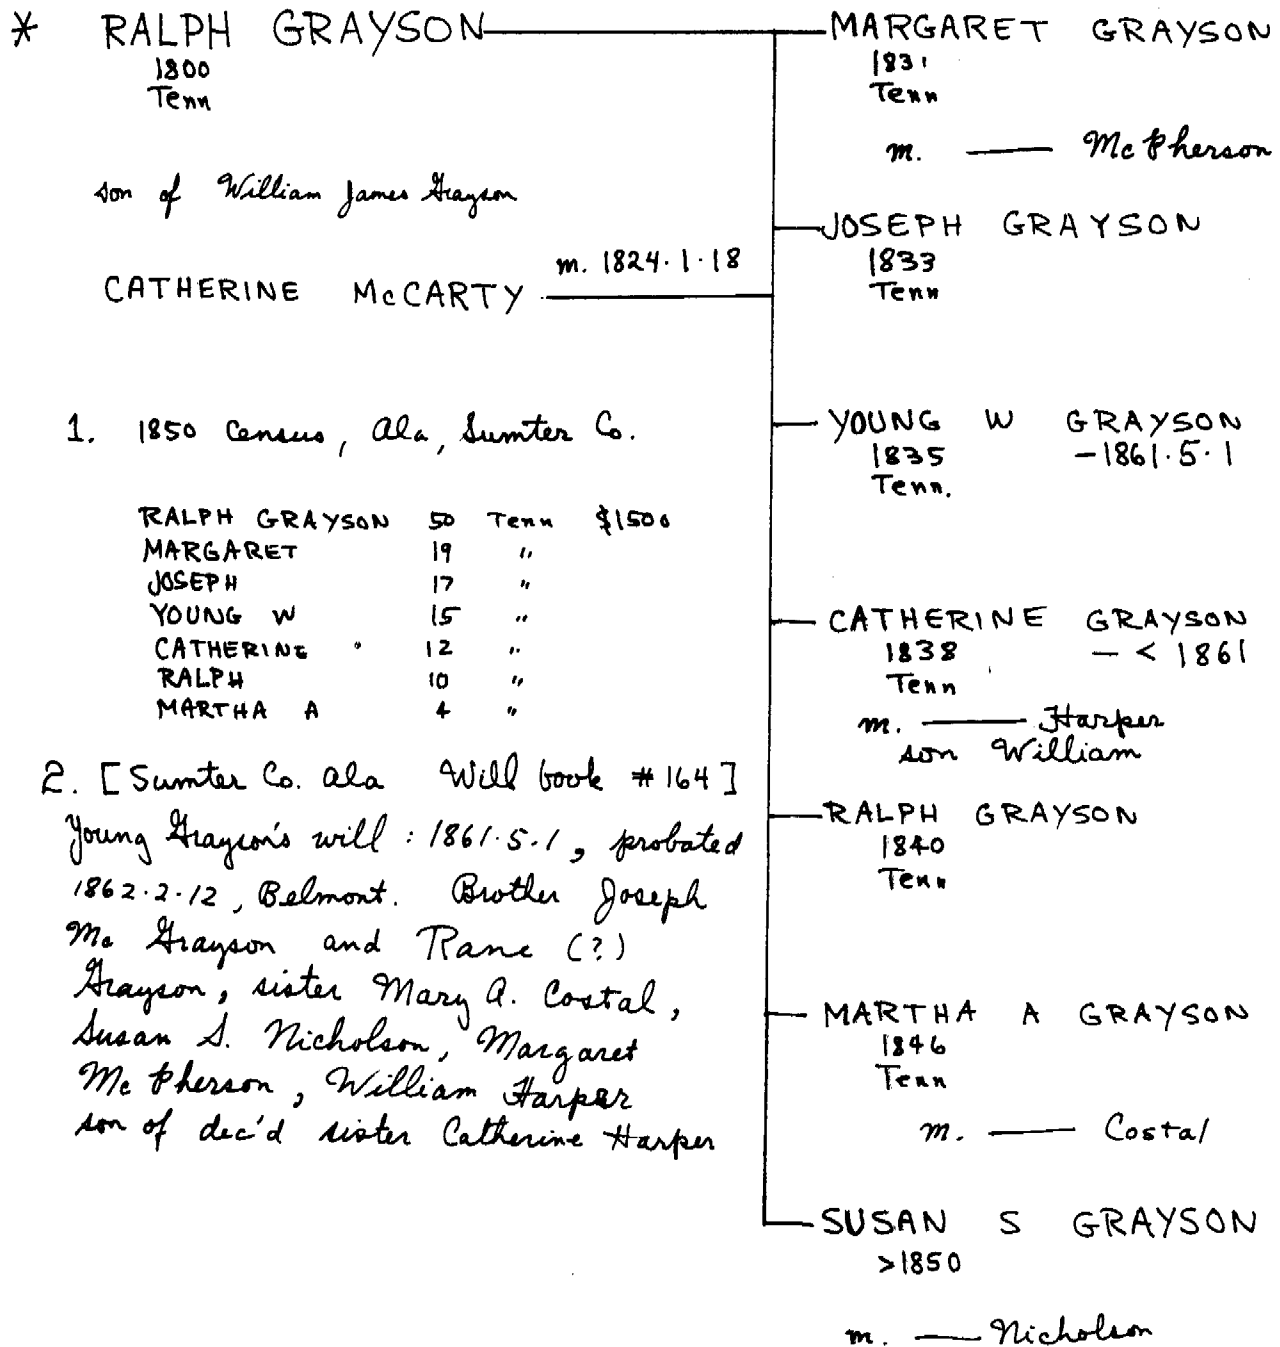 * RALPH GRAYSON
1800
Tenn
son of William James Grayson
CATHERINE McCARTY m. 1824.1.18
1. 1850 Census, Ala, Sumter Co.
RALPH GRAYSON 50 Tenn $1500
MARGARET 19 "
JOSEPH 17 "
YOUNG W 15 "
CATHERINE 12 "
RALPH 10 "
MARTHA A 4 "
2. [Sumter Co. Ala Will book #164]
Young Grayson's will : 1861.5.1, probated
1862.2.12, Belmont. Brother Joseph
Mc Grayson and Rane (?)
Grayson, sister Mary A. Costal,
Susan S. Nicholson, Margaret
McPherson, William Harper
son of dec'd sister Catherine Harper
MARGARET GRAYSON
1831
Tenn
m. — McPherson
JOSEPH GRAYSON
1833
Tenn
YOUNG W GRAYSON
1835 -1861.5.1
Tenn.
CATHERINE GRAYSON
1838 - < 1861
Tenn
m. — Harper
son William
RALPH GRAYSON
1840
Tenn
MARTHA A GRAYSON
1846
Tenn
m. — Costal
SUSAN S GRAYSON
>1850
m. — Nicholson